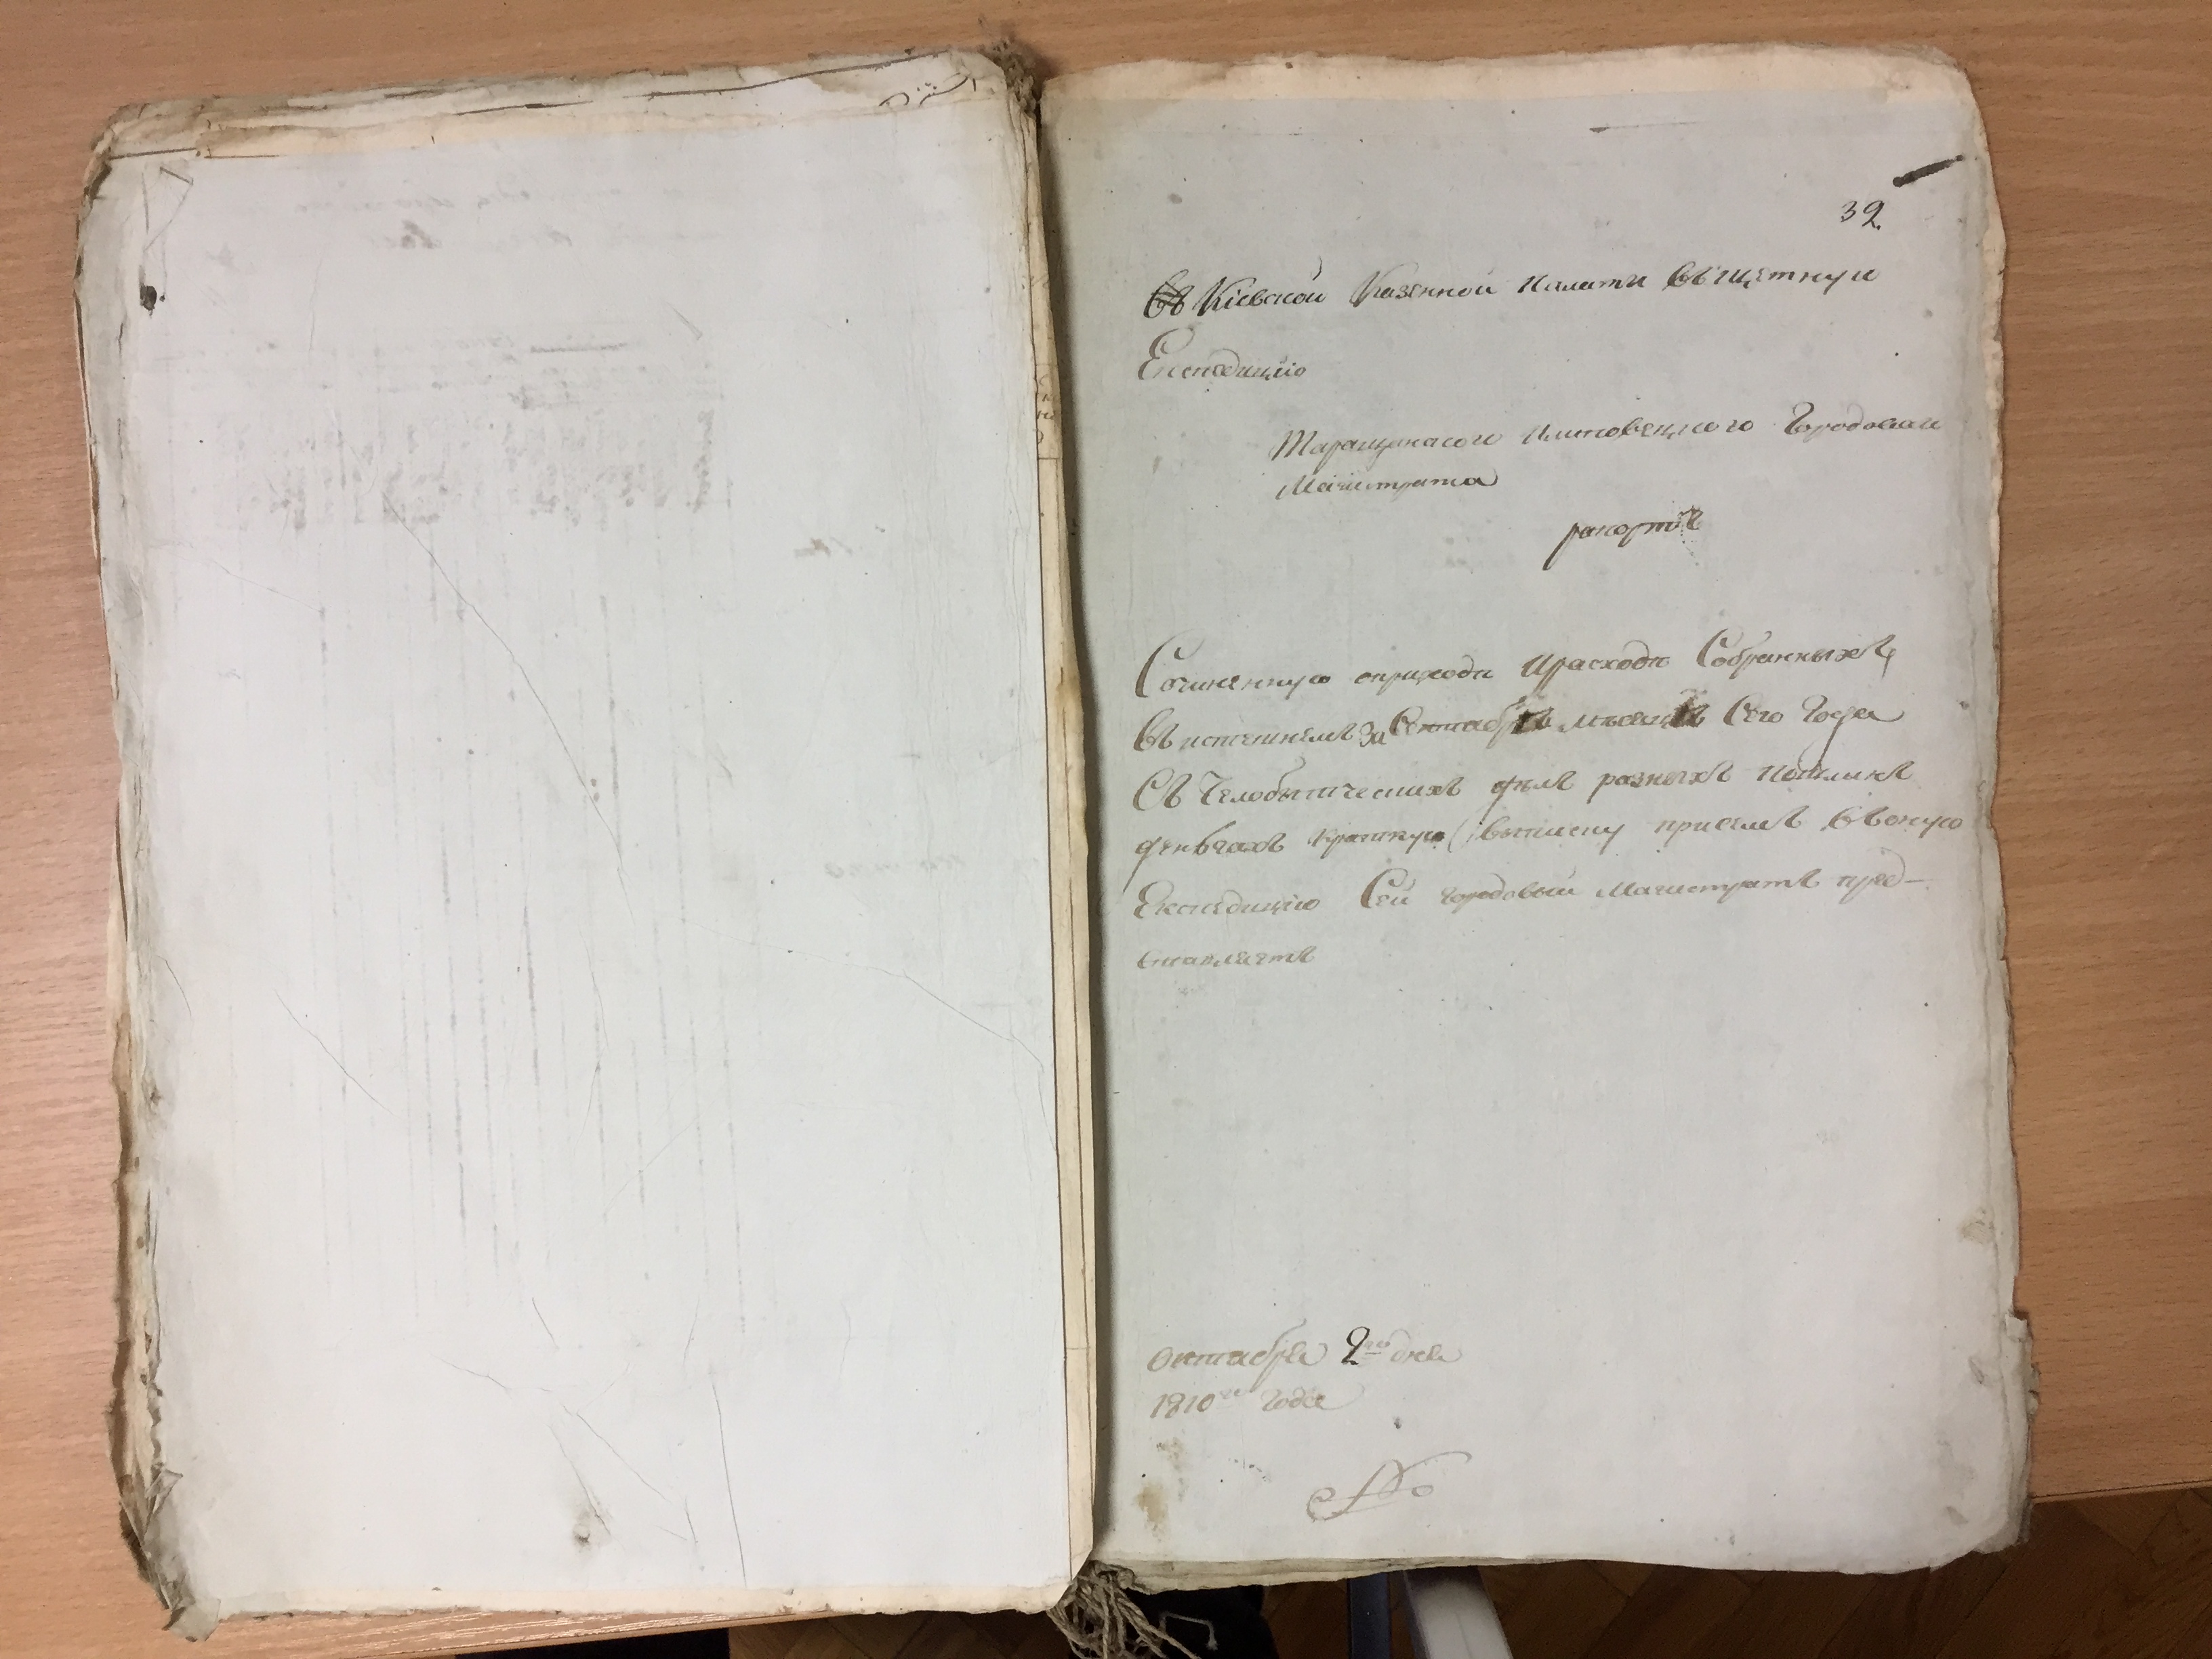 32
Въ Кіевской Казенной Палаты въ щетную
Експедицію
Таращанского Пятовецкого Городоваго
Магистрата
рапортъ
Сочиненную оприходе ирасходе Собранныхъ
въ истекшемъ за Сентябрь месяцъ Сего Года
Съ Челобытческихъ делъ разныхъ пошлинъ
деньгахъ краткую выписку присемъ въоную
Експедицію Сей городовый Магистратъ пред-
ставляетъ
октября 2го дня
1810го года